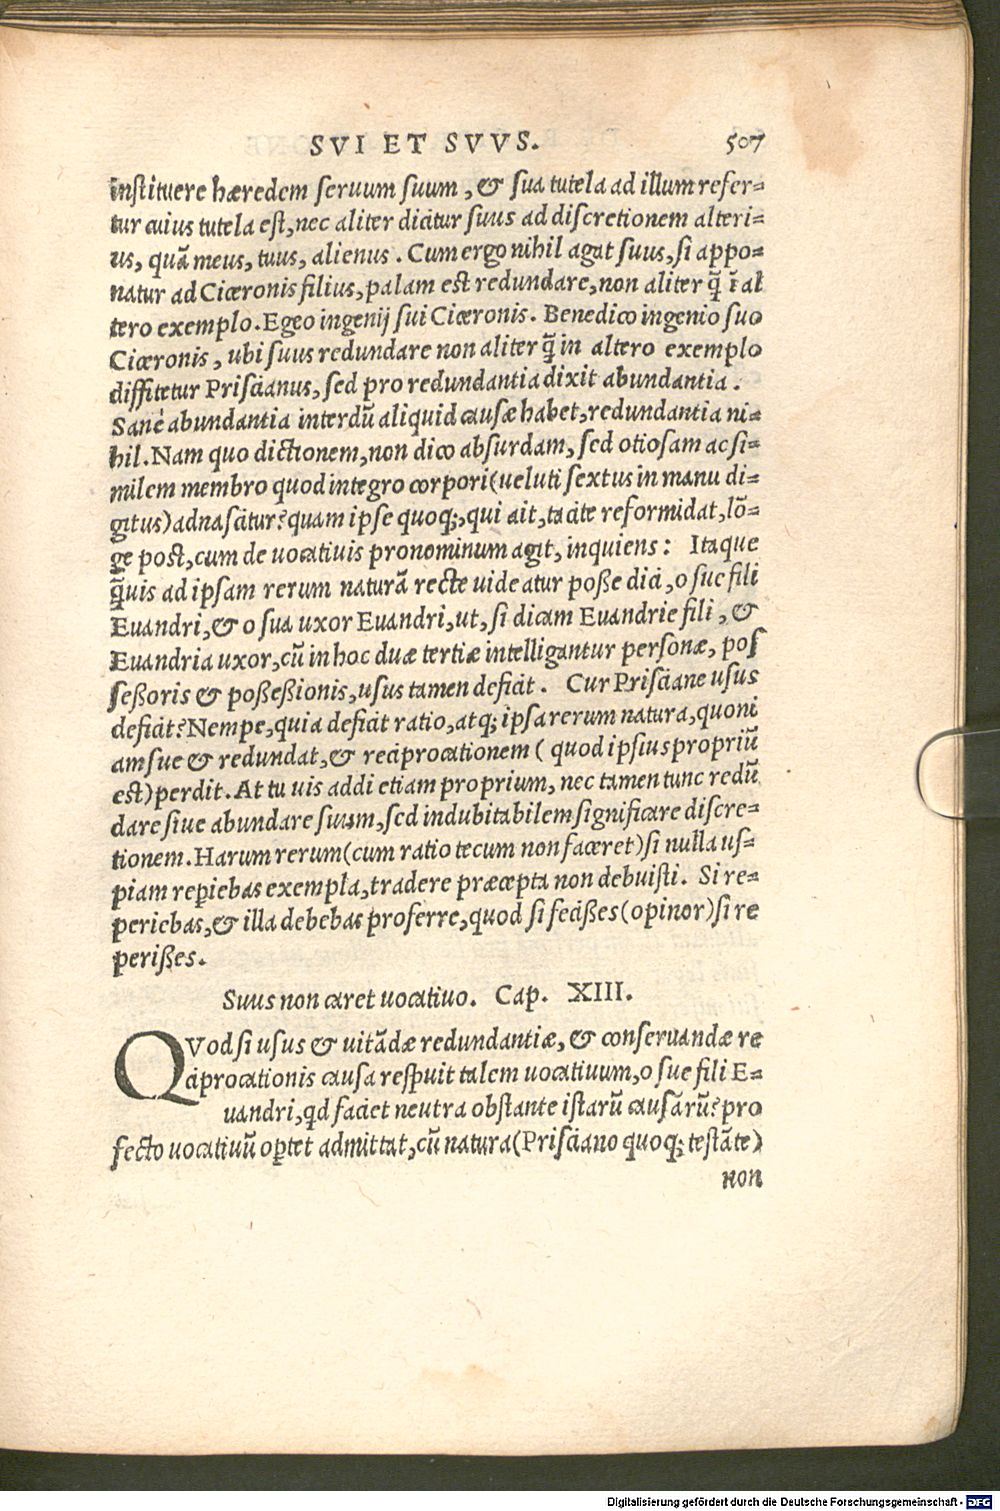 SVI ET SVVS. 507
instituere hæredem seruum suum, & sua tutela ad illum refer-
tur cuius tutela est, nec aliter dicitur suus ad discretionem alteri-
us, quā meus, tuus, alienus. Cum ergo nihil agat suus, si appo-
natur ad Ciceronis filius, palam est redundare, non aliter q̄ ī al
tero exemplo. Egeo ingenij sui Ciceronis. Benedico ingenio suo
Ciceronis, ubi suus redundare non aliter q̄ in altero exemplo
diffitetur Priscianus, sed pro redundantia dixit abundantia.
Sanè abundantia interdū aliquid causæ habet, redundantia ni-
hil. Nam quo dictionem, non dico absurdam, sed otiosam ac si-
milem membro quod integro corpori (ueluti sextus in manu di-
gitus) adnascitur? quam ipse quoq;, qui ait, tacite reformidat, lō-
ge post, cum de uocatiuis pronominum agit, inquiens: Itaque
q̄uis ad ipsam rerum naturā recte uideatur posse dici, o sue fili
Euandri, & o sua uxor Euandri, ut, si dicam Euandrie fili, &
Euandria uxor, cū in hoc duæ tertiæ intelligantur personæ, pos
sessoris & possessionis, usus tamen deficit. Cur Prisciane usus
deficit? Nempe, quia deficit ratio, atq; ipsa rerum natura, quoni
am sue & redundat, & reciprocationem (quod ipsius propriū
est) perdit. At tu uis addi etiam proprium, nec tamen tunc redū
dare siue abundare suum, sed indubitabilem significare discre-
tionem. Harum rerum (cum ratio tecum non faceret) si nulla us-
piam reperiebas exempla, tradere præcepta non debuisti. Si re-
periebas, & illa debebas proferre, quod si fecisses (opinor) si re
perisses.
Suus non caret uocatiuo. Cap. XIII.
QVod si usus & uitādæ redundantiæ, & conseruandæ re
ciprocationis causa respuit talem uocatiuum, o sue fili E-
uandri, qd faciet neutra obstante istarū causarū? pro
fecto uocatiuū oportet admittat, cū natura (Prisciano quoq; testāte)
non
Digitalisierung gefördert durch die Deutsche Forschungsgemeinschaft - DFG